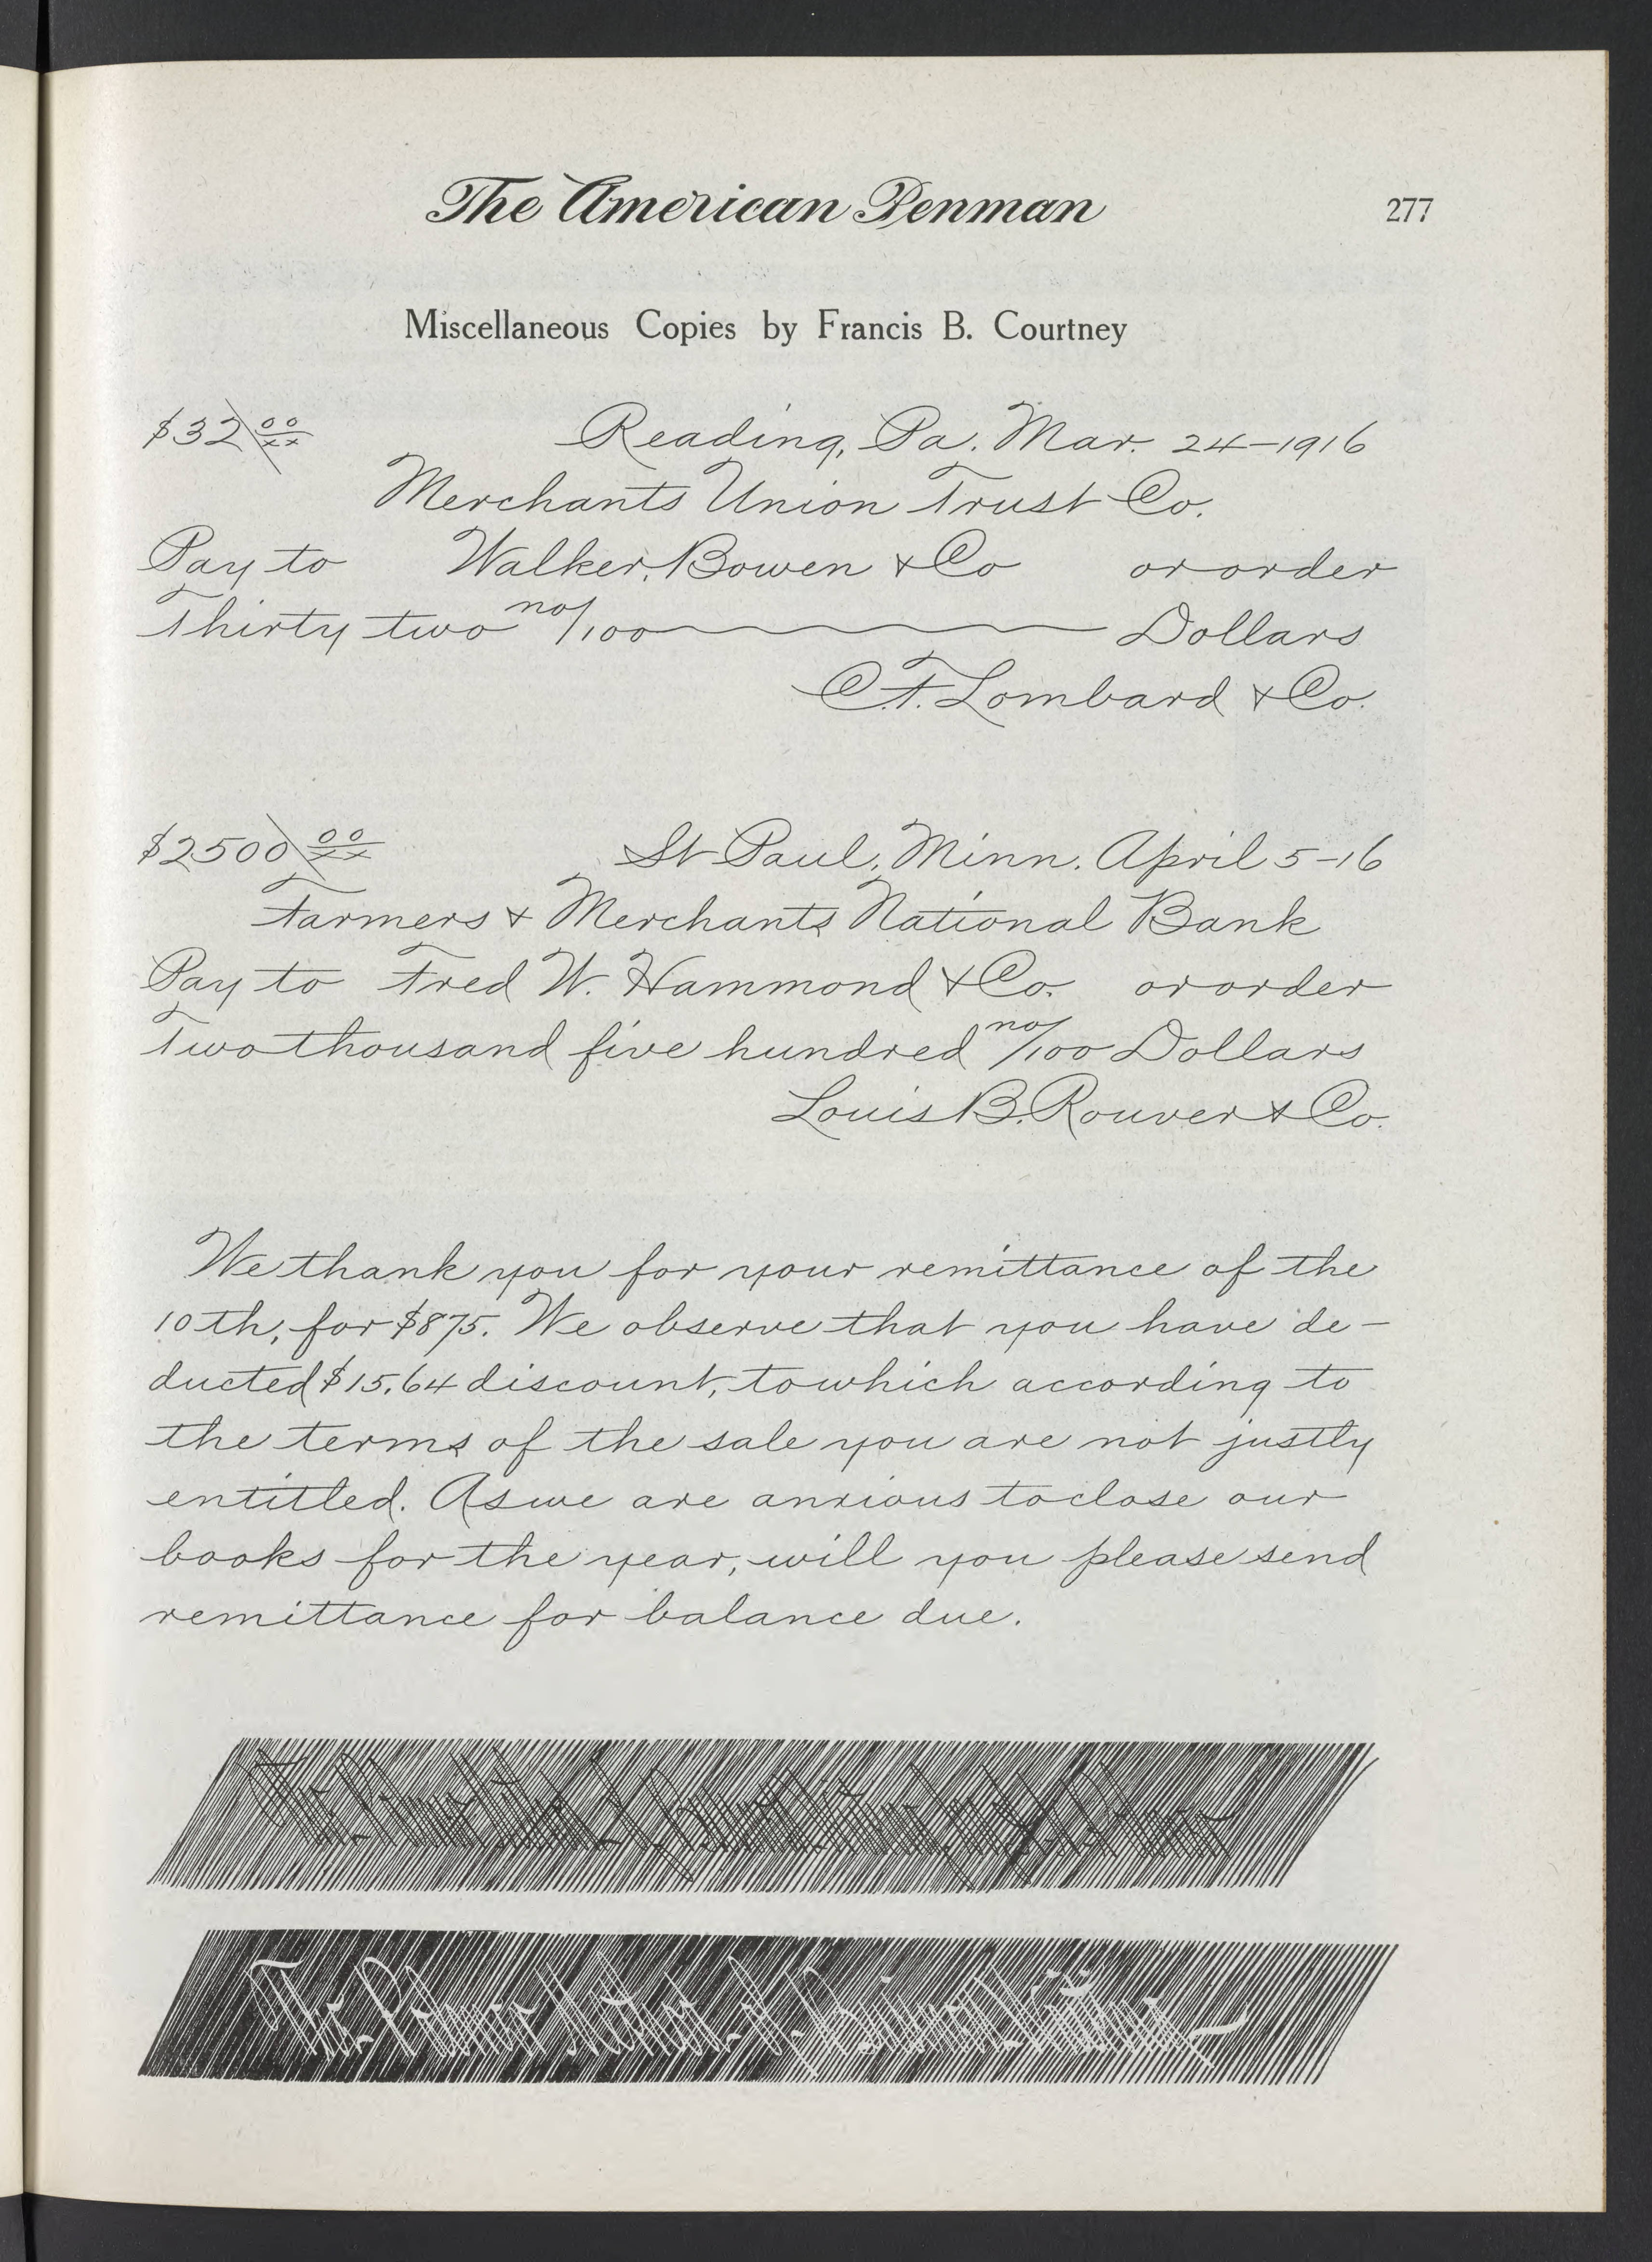 The American Penman 277
Miscellaneous Copies by Francis B. Courtney
$32 00/xx Reading, Pa. Mar. 24-1916
Merchants Union Trust Co.
Pay to Walker, Bowen & Co or order
Thirty two no/100 Dollars
C.F. Lombard & Co.
$2500 00/xx St Paul, Minn. April 5-16
Farmers & Merchants National Bank
Pay to Fred W. Hammond & Co. or order
Two thousand five hundred no/100 Dollars
Louis B. Rouver & Co.
We thank you for your remittance of the
10th, for $875. We observe that you have de-
ducted $15.64 discount, to which according to
the terms of the sale you are not justly
entitled. As we are anxious to close our
books for the year, will you please send
remittance for balance due.
The Palmer Method
The Palmer Method of Business Writing